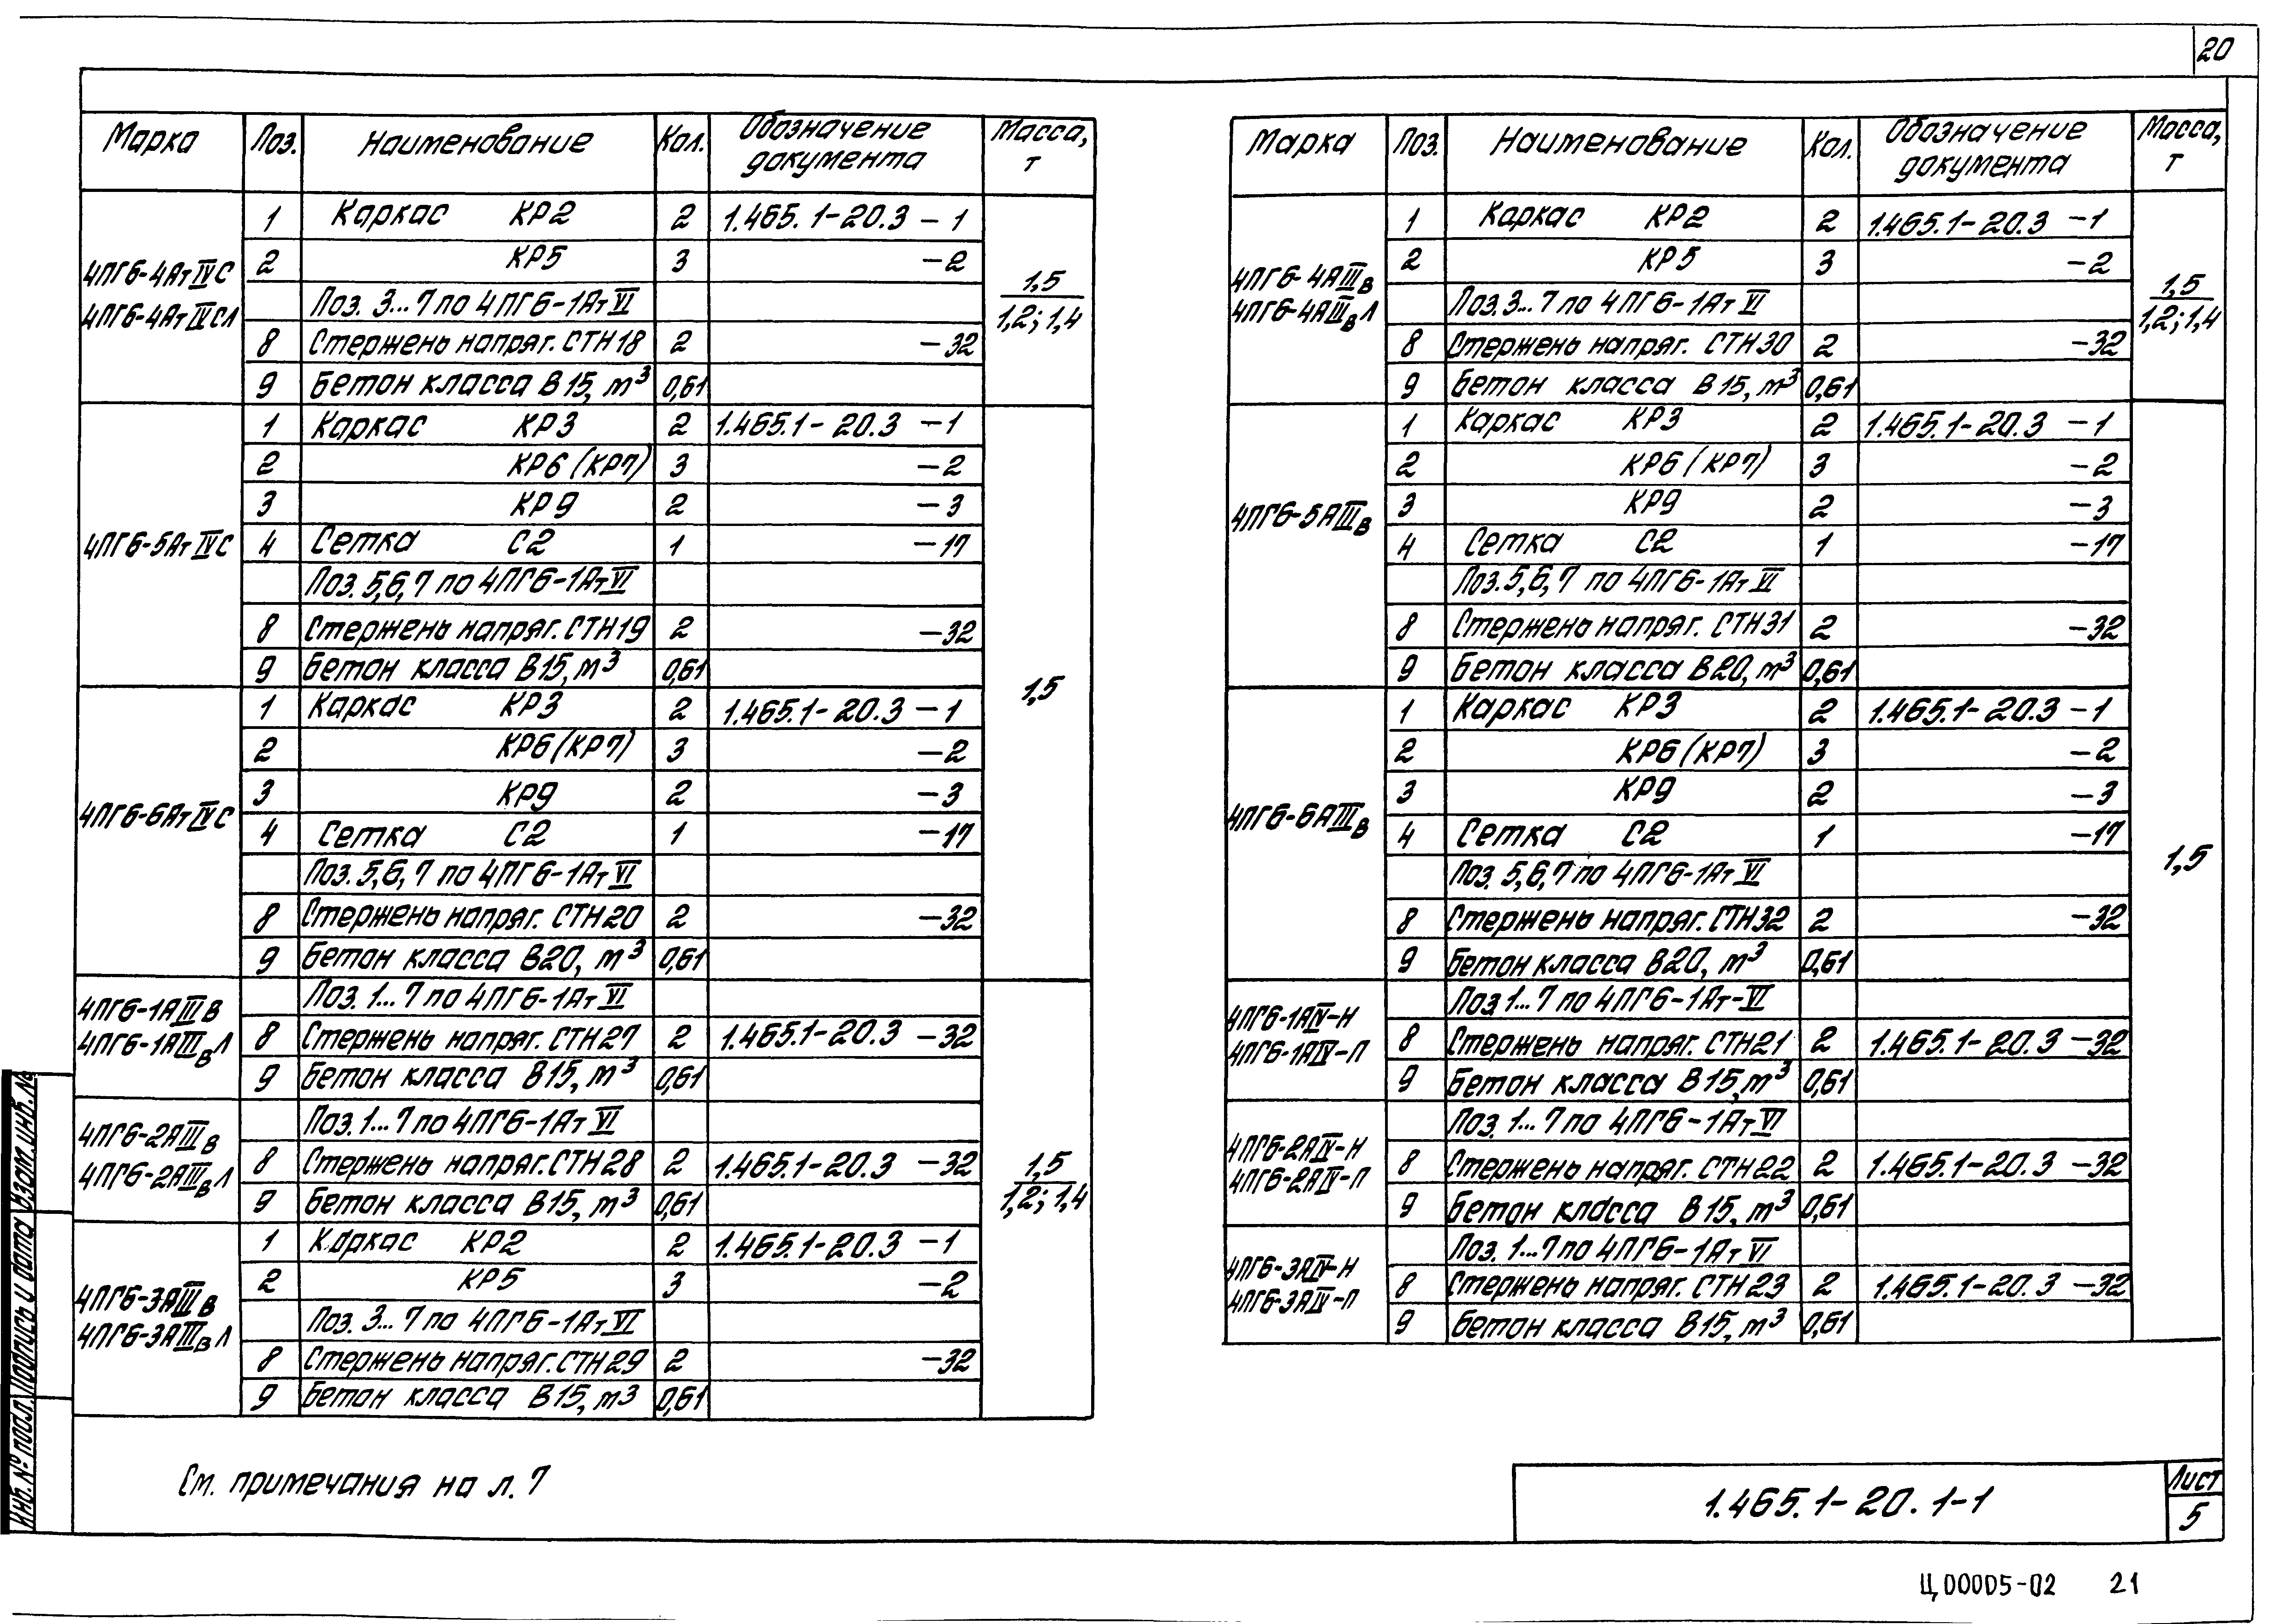 20
Марка Поз. Наименование Кол. Обозначение документа Масса, т
4ПГ6-4АтIVС
4ПГ6-4АтIVСЛ
1 Каркас КР2 2 1.465.1-20.3 -1
2 КР5 3 -2
Поз. 3...7 по 4ПГ6-1АтVI
8 Стержень напряг. СТН18 2 -32
9 Бетон класса В15, м³ 0,61
1,5
1,2; 1,4
4ПГ6-5АтIVС
1 Каркас КР3 2 1.465.1-20.3 -1
2 КР6 (КР7) 3 -2
3 КР9 2 -3
4 Сетка С2 1 -17
Поз. 5,6,7 по 4ПГ6-1АтVI
8 Стержень напряг. СТН19 2 -32
9 Бетон класса В15, м³ 0,61
1,5
4ПГ6-6АтIVС
1 Каркас КР3 2 1.465.1-20.3 -1
2 КР6 (КР7) 3 -2
3 КР9 2 -3
4 Сетка С2 1 -17
Поз. 5,6,7 по 4ПГ6-1АтVI
8 Стержень напряг. СТН20 2 -32
9 Бетон класса В20, м³ 0,61
4ПГ6-1АIIIв
4ПГ6-1АIIIвЛ
Поз. 1...7 по 4ПГ6-1АтVI
8 Стержень напряг. СТН27 2 1.465.1-20.3 -32
9 Бетон класса В15, м³ 0,61
4ПГ6-2АIIIв
4ПГ6-2АIIIвЛ
Поз. 1...7 по 4ПГ6-1АтVI
8 Стержень напряг. СТН28 2 1.465.1-20.3 -32
9 Бетон класса В15, м³ 0,61
1,5
1,2; 1,4
4ПГ6-3АIIIв
4ПГ6-3АIIIвЛ
1 Каркас КР2 2 1.465.1-20.3 -1
2 КР5 3 -2
Поз. 3...7 по 4ПГ6-1АтVI
8 Стержень напряг. СТН29 2 -32
9 Бетон класса В15, м³ 0,61
Марка Поз. Наименование Кол. Обозначение документа Масса, т
4ПГ6-4АIIIв
4ПГ6-4АIIIвЛ
1 Каркас КР2 2 1.465.1-20.3 -1
2 КР5 3 -2
Поз. 3...7 по 4ПГ6-1АтVI
8 Стержень напряг. СТН30 2 -32
9 Бетон класса В15, м³ 0,61
1,5
1,2; 1,4
4ПГ6-5АIIIв
1 Каркас КР3 2 1.465.1-20.3 -1
2 КР6 (КР7) 3 -2
3 КР9 2 -3
4 Сетка С2 1 -17
Поз. 5,6,7 по 4ПГ6-1АтVI
8 Стержень напряг. СТН31 2 -32
9 Бетон класса В20, м³ 0,61
4ПГ6-6АIIIв
1 Каркас КР3 2 1.465.1-20.3 -1
2 КР6 (КР7) 3 -2
3 КР9 2 -3
4 Сетка С2 1 -17
Поз. 5,6,7 по 4ПГ6-1АтVI
8 Стержень напряг. СТН32 2 -32
9 Бетон класса В20, м³ 0,61
1,5
4ПГ6-1АIV-Н
4ПГ6-1АIV-П
Поз. 1...7 по 4ПГ6-1Ат-VI
8 Стержень напряг. СТН21 2 1.465.1-20.3 -32
9 Бетон класса В15, м³ 0,61
4ПГ6-2АIV-Н
4ПГ6-2АIV-П
Поз. 1...7 по 4ПГ6-1АтVI
8 Стержень напряг. СТН22 2 1.465.1-20.3 -32
9 Бетон класса В15, м³ 0,61
4ПГ6-3АIV-Н
4ПГ6-3АIV-П
Поз. 1...7 по 4ПГ6-1АтVI
8 Стержень напряг. СТН23 2 1.465.1-20.3 -32
9 Бетон класса В15, м³ 0,61
Инв. № подл. Подпись и дата Взам. инв. №
См. примечания на л. 7
1.465.1-20.1-1
Лист
5
Ц00005-02 21